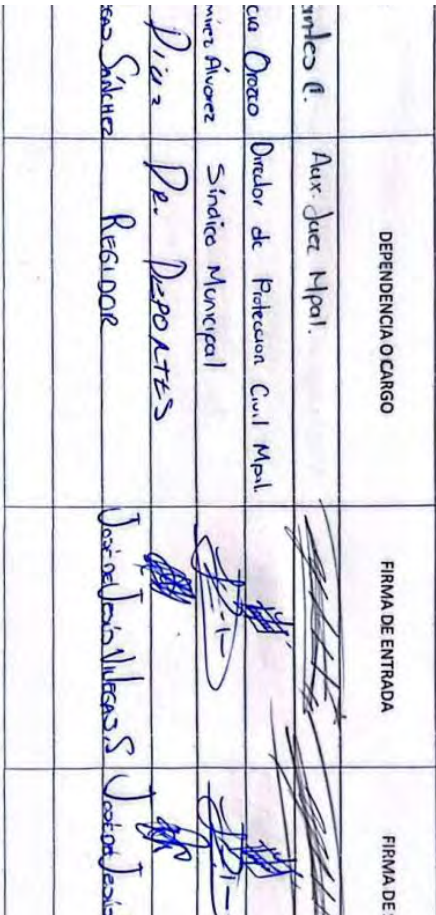 DEPENDENCIA O CARGO FIRMA DE ENTRADA FIRMA DE
Aux. Juez Mpal.
Orozco Director de Proteccion Civil Mpal.
Álvarez Síndico Municipal
Díaz De. DEPORTES
SÁNCHEZ REGIDOR José de Jesús Villegas S José de Jesús